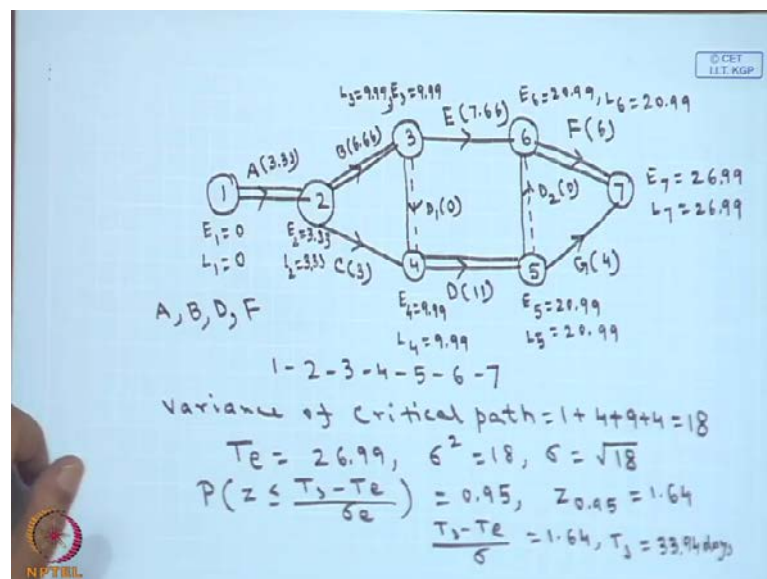 © CET
I.I.T. KGP
L₃=9.99, E₃=9.99
E₆=20.99, L₆=20.99
E(7.66)
F(6)
B(6.66)
A(3.33)
3
6
1
2
7
D₁(0)
D₂(0)
E₇=26.99
L₇=26.99
E₁=0
L₁=0
E₂=3.33
L₂=3.33
C(3)
G(4)
4
5
D(11)
A, B, D, F
E₄=9.99
L₄=9.99
E₅=20.99
L₅=20.99
1-2-3-4-5-6-7
Variance of critical path=1+4+9+4=18
Te= 26.99, σ²=18, σ=√18
P(z ≤ (Ts-Te)/σe) = 0.95, Z0.95=1.64
(Ts-Te)/σ =1.64, Ts=33.94 days
NPTEL